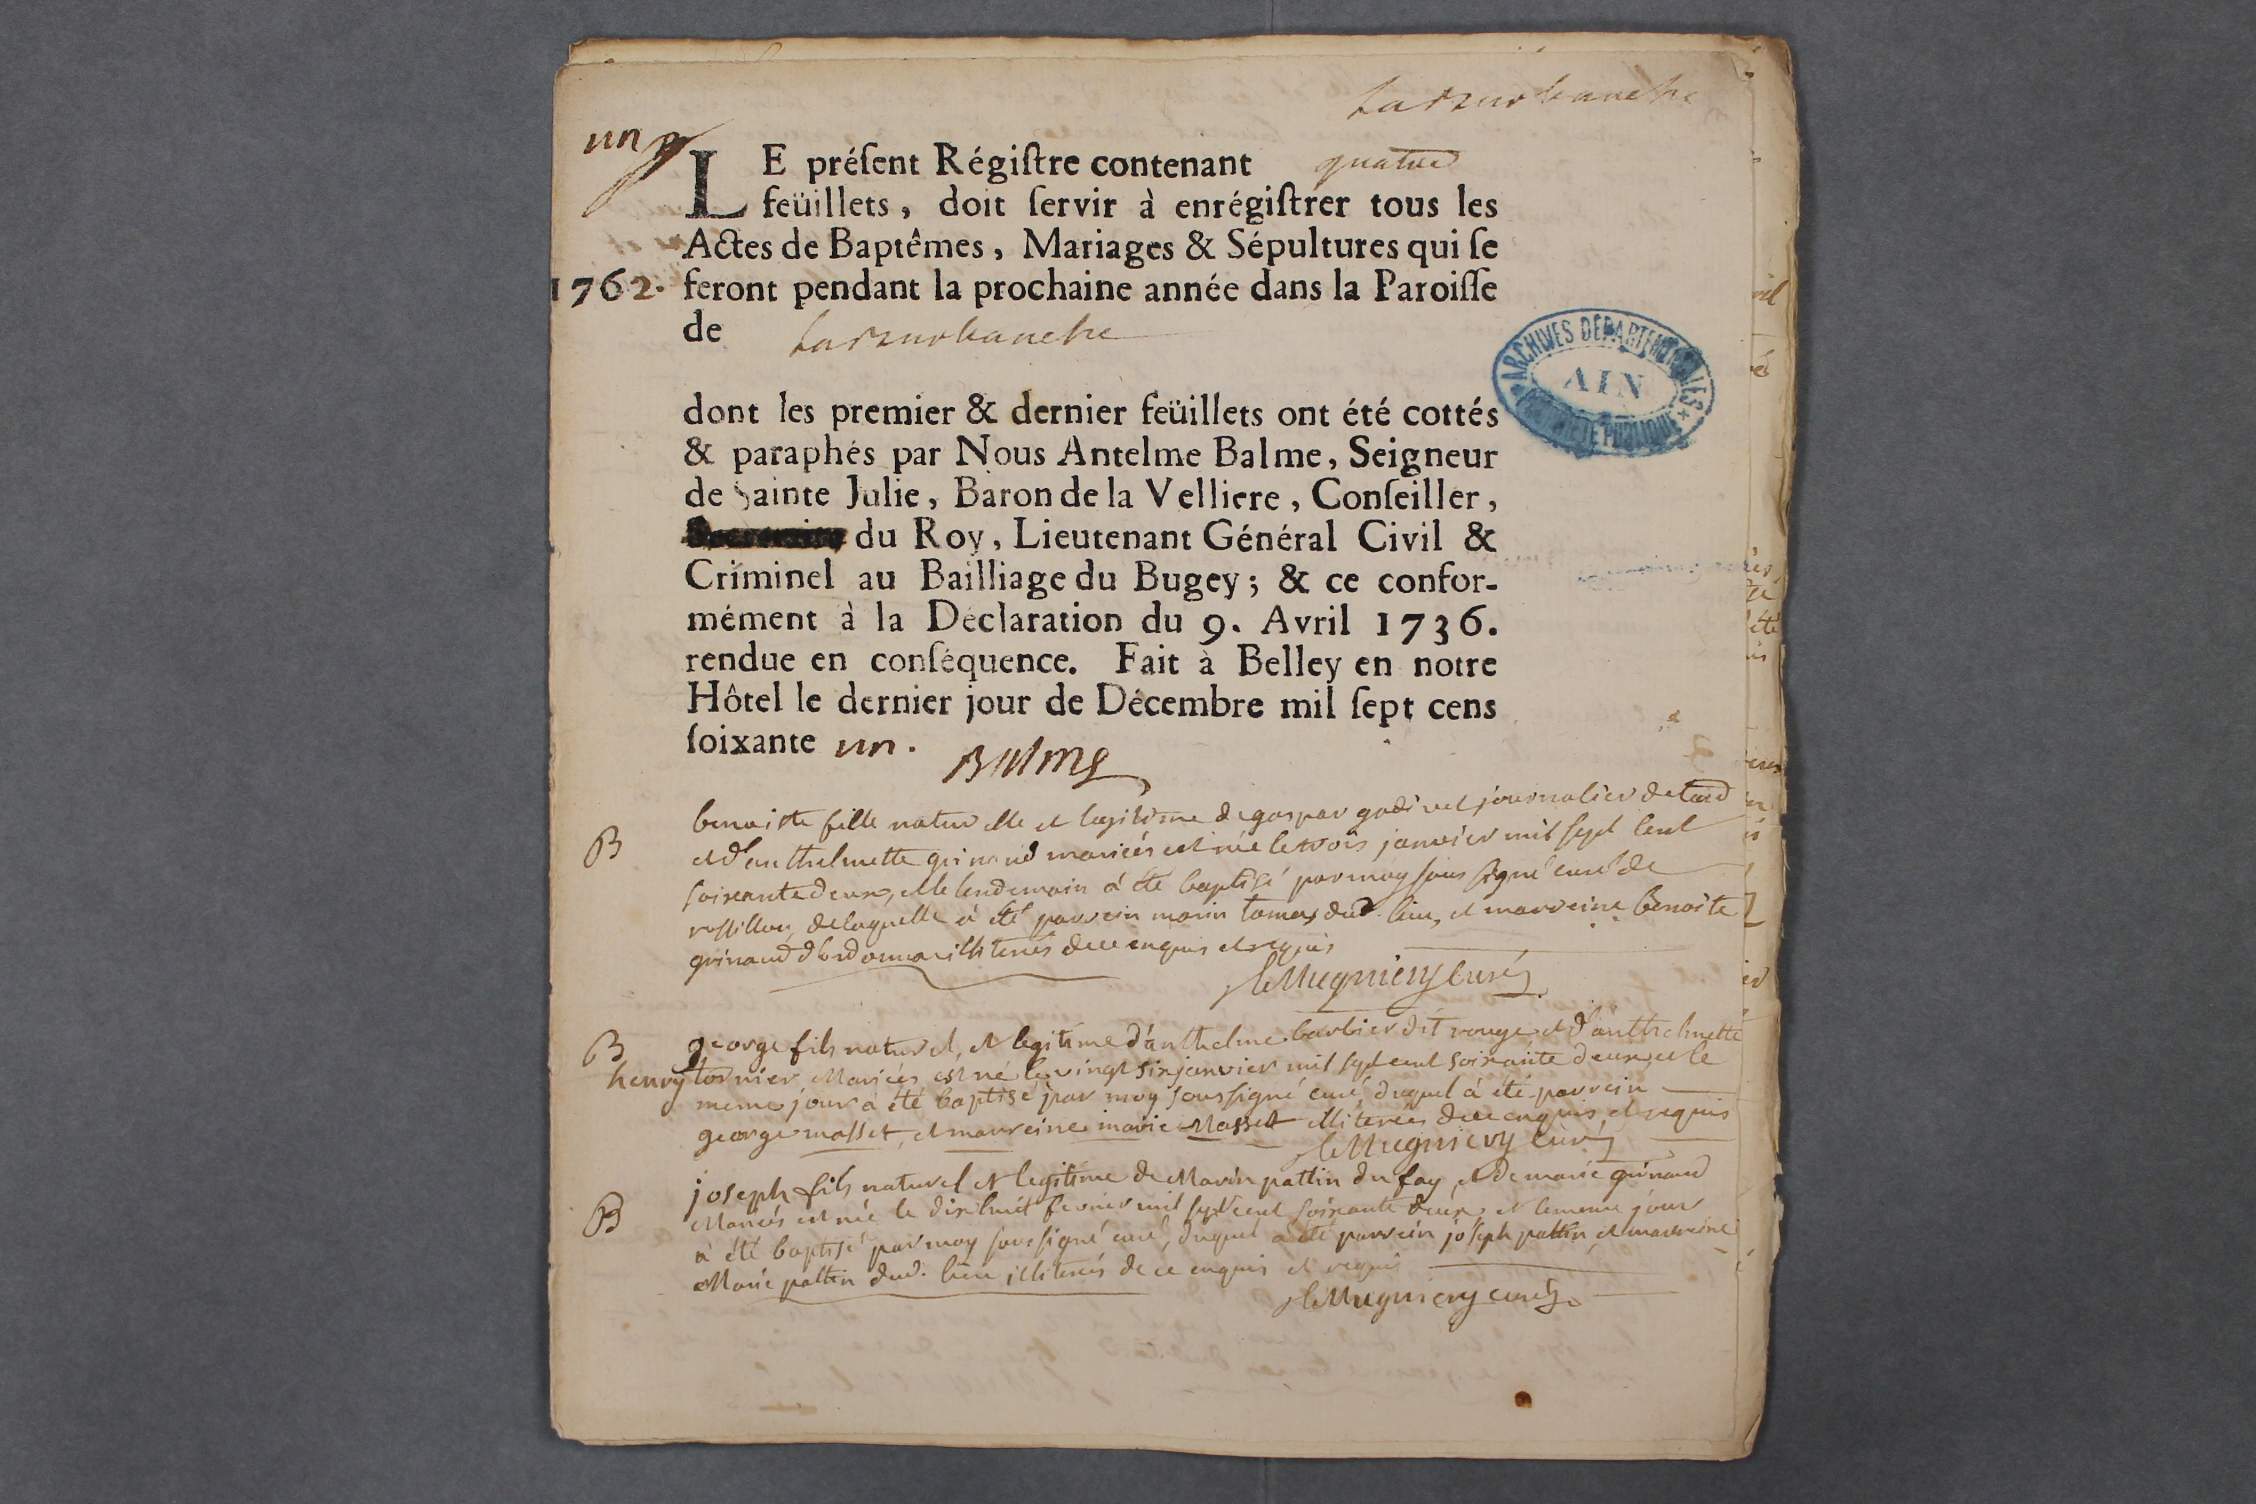 Laburbanche
un
LE préſent Régiſtre contenant quatre
feüillets, doit ſervir à enrégiſtrer tous les
Actes de Baptêmes, Mariages & Sépultures qui ſe
1762. feront pendant la prochaine année dans la Paroiſſe
de Laburbanche
ARCHIVES DÉPARTEMENTALES
AIN
PUBLIQUE
dont les premier & dernier feüillets ont été cottés
& paraphés par Nous Antelme Balme, Seigneur
de Sainte Julie, Baron de la Velliere, Conſeiller,
du Roy, Lieutenant Général Civil &
Criminel au Bailliage du Bugey; & ce confor-
mément à la Déclaration du 9. Avril 1736.
rendue en conſéquence. Fait à Belley en notre
Hôtel le dernier jour de Décembre mil ſept cens
ſoixante un.
Balme
B benoiste fille naturelle et legitime de gaspar godivet journalier
et d'anthelmette guinand mariées est née le trois janvier mil sept cent
soixante deux, et le lendemain à été baptisé par moy sous signé curé de
rossillon, de laquelle à été parrein marin tamas dud. lieu, et marreine benoite
guinand d'ordonna illiterés de ce enquis et requis
Mugniery curé
B george fils naturel, et legitime d'anthelme barbier dit rouge et d'anthelmette
henry tornier Mariées est né le vingt six janvier mil sept cent soixante deux, et le
meme jour à été baptisé par moy soussigné curé, duquel à été parrein
george masset, et marreine marie Masset illiterées de ce enquis, et requis
Mugniery curé
B joseph fils naturel et legitime de Marin pattin du fay, et de marie guinand
Mariés est née le dix huit fevrier mil sept cent soixante deux, et le meme jour
à été baptisé par moy sous signé curé, duquel a été parrein joseph pattin, et marreine
Marie pattin dud. lieu illiterés de ce enquis et requis
Mugniery curé